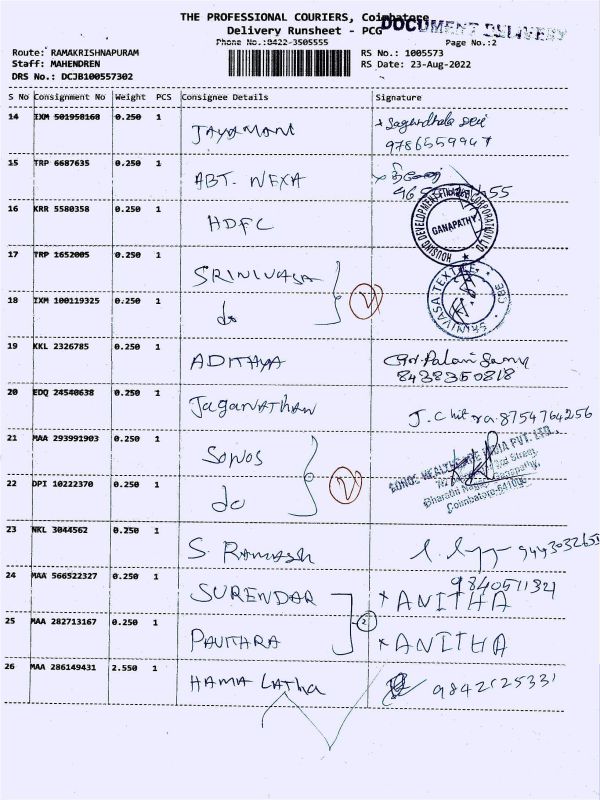 THE PROFESSIONAL COURIERS, Coimbatore
DOCUMENT DELIVERY
Delivery Runsheet - PCG
Phone No.:0422-3505555
Page No.:2
Route: RAMAKRISHNAPURAM
RS No.: 1005573
Staff: MAHENDREN
RS Date: 23-Aug-2022
DRS No.: DCJB100557302
S No Consignment No Weight PCS Consignee Details Signature
14 IXM 501958168 0.250 1 JAYAMANI
9786559947
15 TRP 6687635 0.250 1 ABT. NEXA
16 KRR 5580358 0.250 1 HDFC
HOUSING DEVELOPMENT FINANCE CORPORATION LTD
GANAPATHY
17 TRP 1652005 0.250 1 SRINIVASA
18 IXM 100119325 0.250 1 do
SRINIVASA TEXTILE CBE
19 KKL 2326785 0.250 1 ADITHYA
8438350818
20 EDQ 24540638 0.250 1 JAGANATHAN J. Chitra 8754764256
21 MAA 293991903 0.250 1 SONOS
22 DPI 10222370 0.250 1 do
SONOS HEALTHCARE INDIA PVT. LTD.,
2nd Street,
Bharathi Nagar, Ganapathy,
Coimbatore-641006
23 NKL 3044562 0.250 1 S. Ramash
24 MAA 566522327 0.250 1 SURENDAR x ANITHA
25 MAA 282713167 0.250 1 PAVITHRA 2 x ANITHA
26 MAA 286149431 2.550 1 HAMA LATHA 9842125331